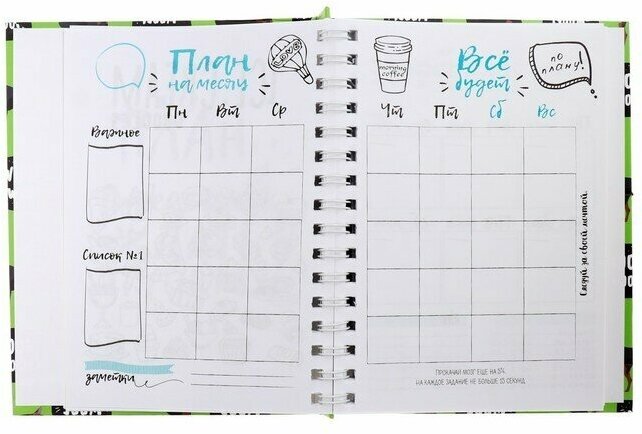 План
на месяц
LOVE
Пн Вт Ср
Важное
Список №1
заметки
morning
coffee
Всё
будет
по
плану!
Чт Пт Сб Вс
Следуй за своей мечтой
ПРОКАЧАЙ МОЗГ ЕЩЕ НА 5%.
НА КАЖДОЕ ЗАДАНИЕ НЕ БОЛЬШЕ 15 СЕКУНД